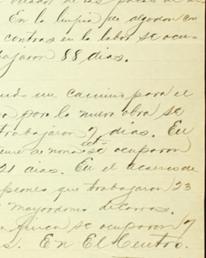 En la limpia de algodon en
centros en la labor se ocu-
bajaron 88 dias.
un camino para el
por la nueva obra se
trabajaron 9 dias. En
se ocuparon
21 dias. En el acarreo de
peones que trabajaron 23
mayordomo de carros.
se ocuparon 9
En El Centro.